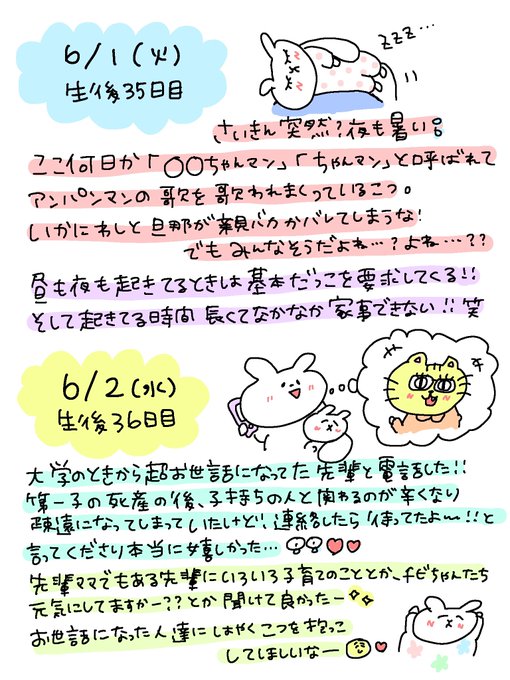 6/1(火)
生後35日目
zzz…
さいきん突然?夜も暑い。
ここ何日か「〇〇ちゃんマン」「ちゃんマン」と呼ばれて
アンパンマンの歌を歌われまくっているこつ。
いかにわしと旦那が親バカかバレてしまうな!
でもみんなそうだよね…?よね…??
昼も夜も起きてるときは基本だっこを要求してくる!!
そして起きてる時間長くてなかなか家事できない!!笑
6/2(水)
生後36日目
大学のときから超お世話になってた先輩と電話した!!
第一子の死産の後、子持ちの人と関わるのが辛くなり
疎遠になってしまっていたけど!連絡したら「待ってたよ〜!!」と
言ってくださり本当に嬉しかった…
先輩ママでもある先輩にいろいろ子育てのこととか、チビちゃんたち
元気にしてますかー??とか聞けて良かったー
お世話になった人達にはやくこつを抱っこ
してほしいなー